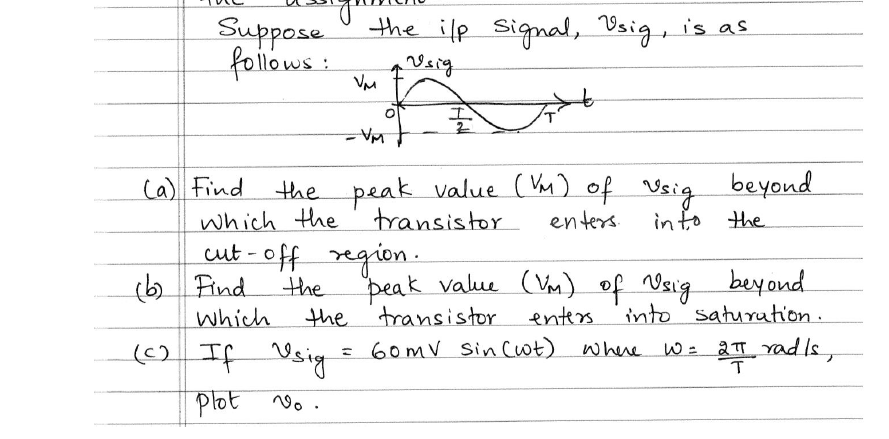 the assignment
Suppose the i/p signal, Vsig, is as
follows :
Vsig
VM
0
T/2
T
t
- VM
(a) Find the peak value (VM) of Vsig beyond
which the transistor enters into the
cut-off region.
(b) Find the peak value (VM) of Vsig beyond
which the transistor enters into saturation.
(c) If Vsig = 60mV sin(ωt) where ω = 2π/T rad/s,
plot vo.